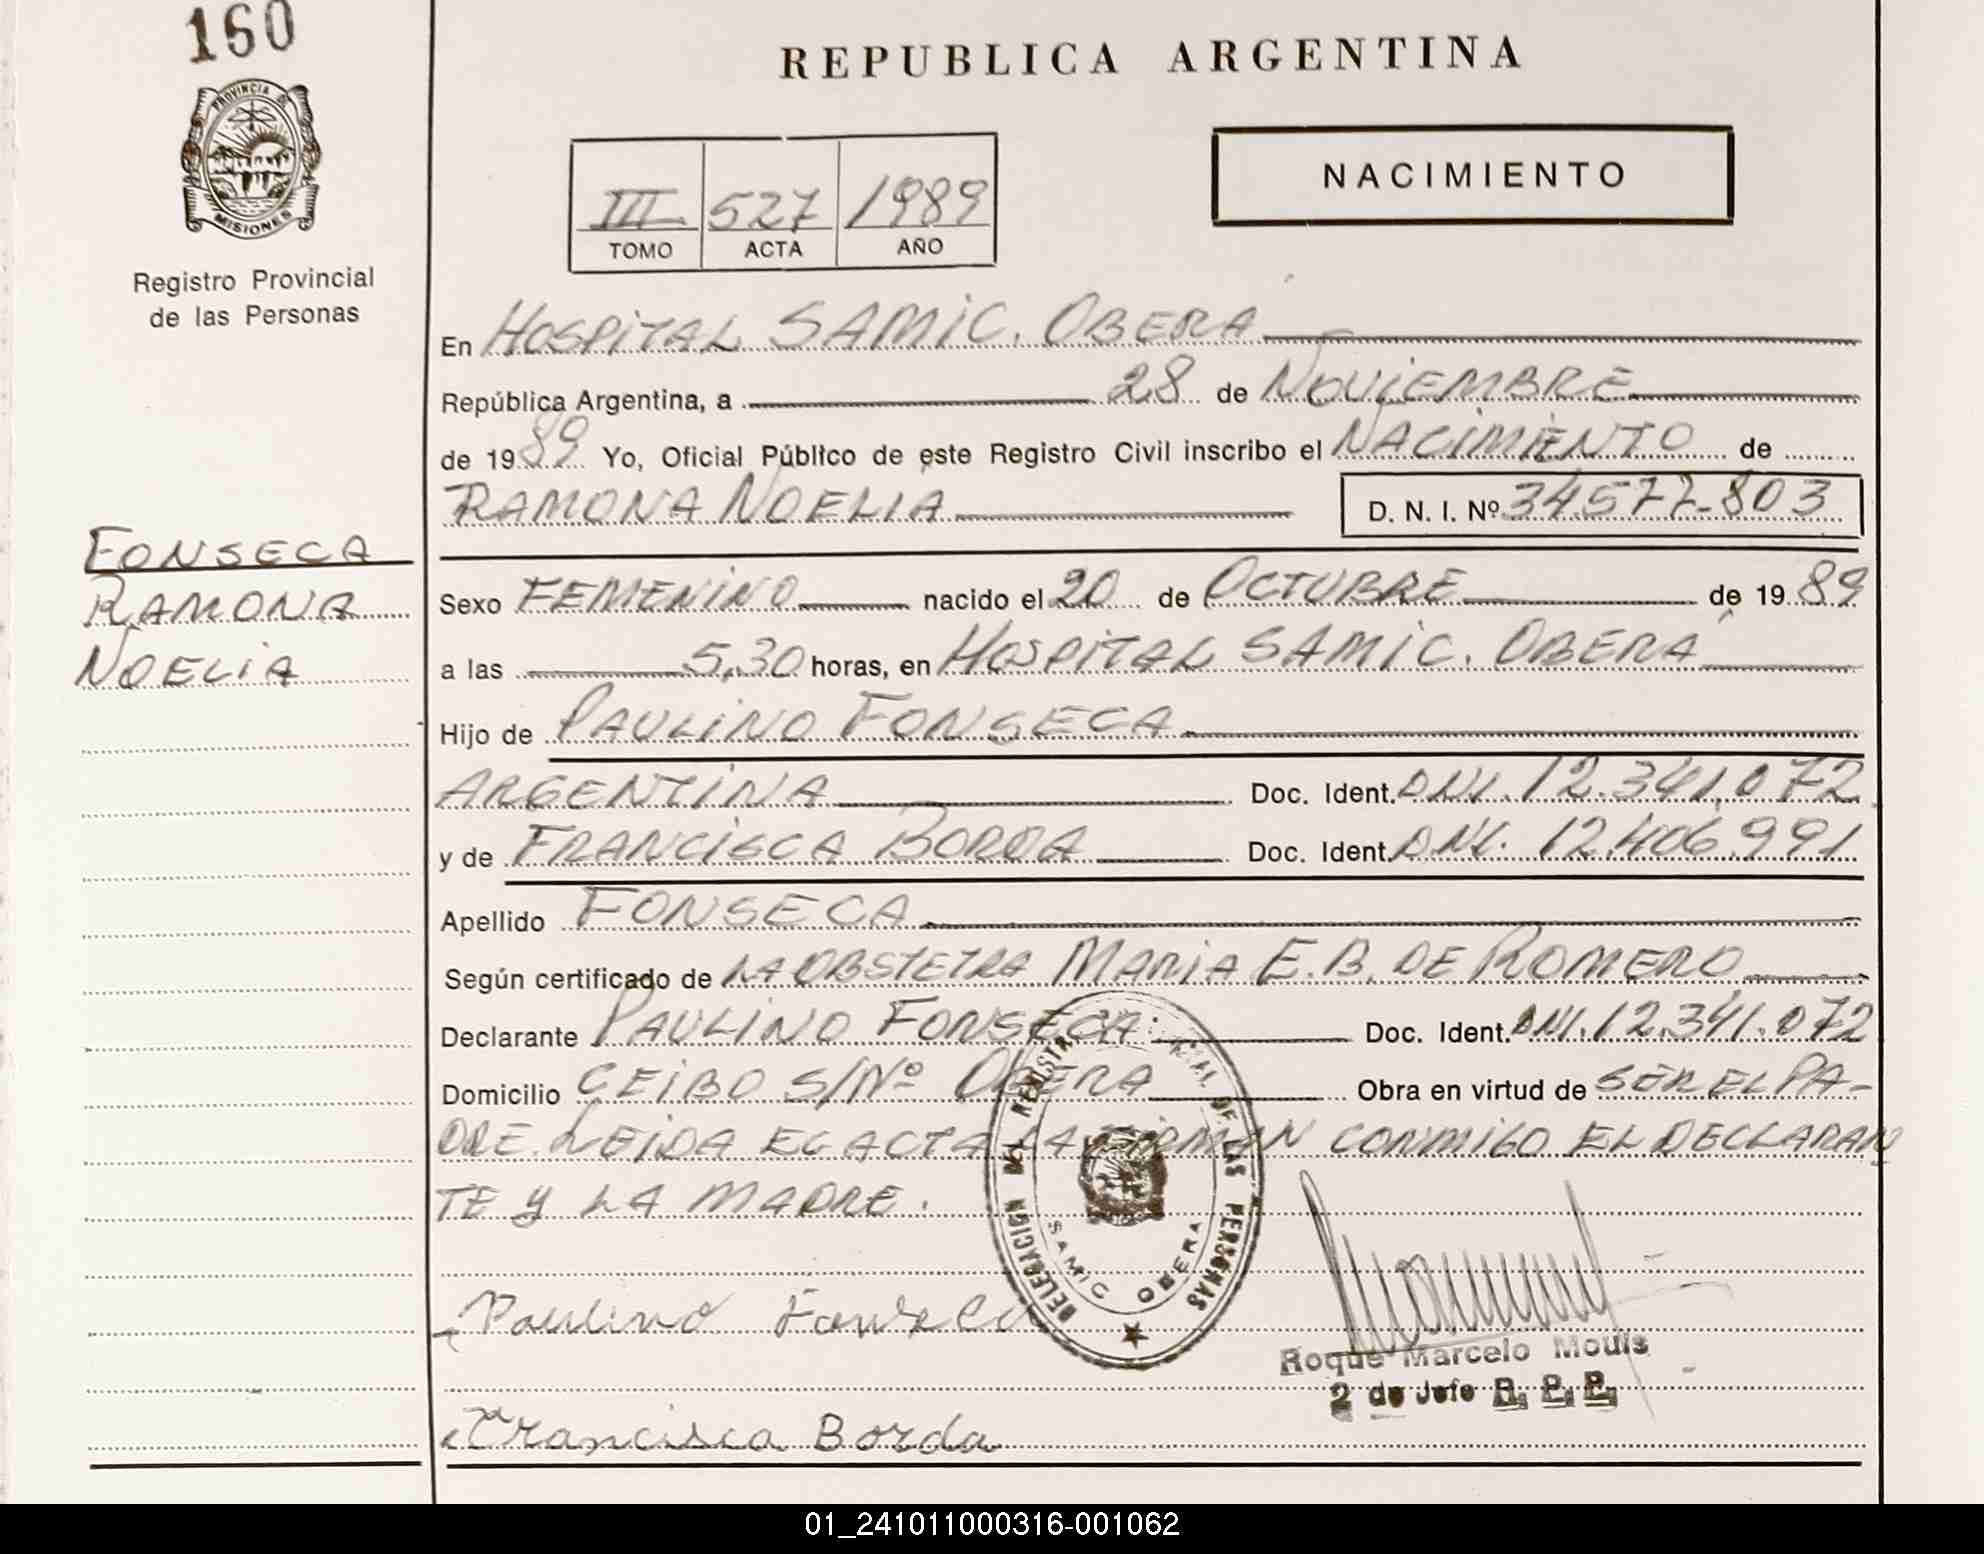 160
PROVINCIA DE
MISIONES
Registro Provincial
de las Personas
FONSECA
RAMONA
NOELIA
REPUBLICA ARGENTINA
NACIMIENTO
III 527 1989
TOMO ACTA AÑO
En HOSPITAL SAMIC. OBERA
República Argentina, a 28 de NOVIEMBRE
de 1989 Yo, Oficial Público de este Registro Civil inscribo el NACIMIENTO de
RAMONA NOELIA D. N. I. Nº 34577-803
Sexo FEMENINO nacido el 20 de OCTUBRE de 1989
a las 5,30 horas, en HOSPITAL SAMIC. OBERA
Hijo de PAULINO FONSECA
ARGENTINA Doc. Ident. DNI. 12.341.072
y de FRANCISCA BORDA Doc. Ident. DNI. 12.406.991
Apellido FONSECA
Según certificado de LA OBSTETRA MARIA E.B. DE ROMERO
Declarante PAULINO FONSECA Doc. Ident. DNI. 12.341.072
Domicilio CEIBO S/Nº OBERA Obra en virtud de SER EL PA-
DRE. LEIDA EL ACTA LA FIRMAN CONMIGO EL DECLARAN
TE Y LA MADRE.
DELEGACION DEL REGISTRO DE LAS PERSONAS
SAMIC OBERA
Paulino Fonseca
Roque Marcelo Mouls
2 do Jefe R. P. P.
Francisca Borda
01_241011000316-001062